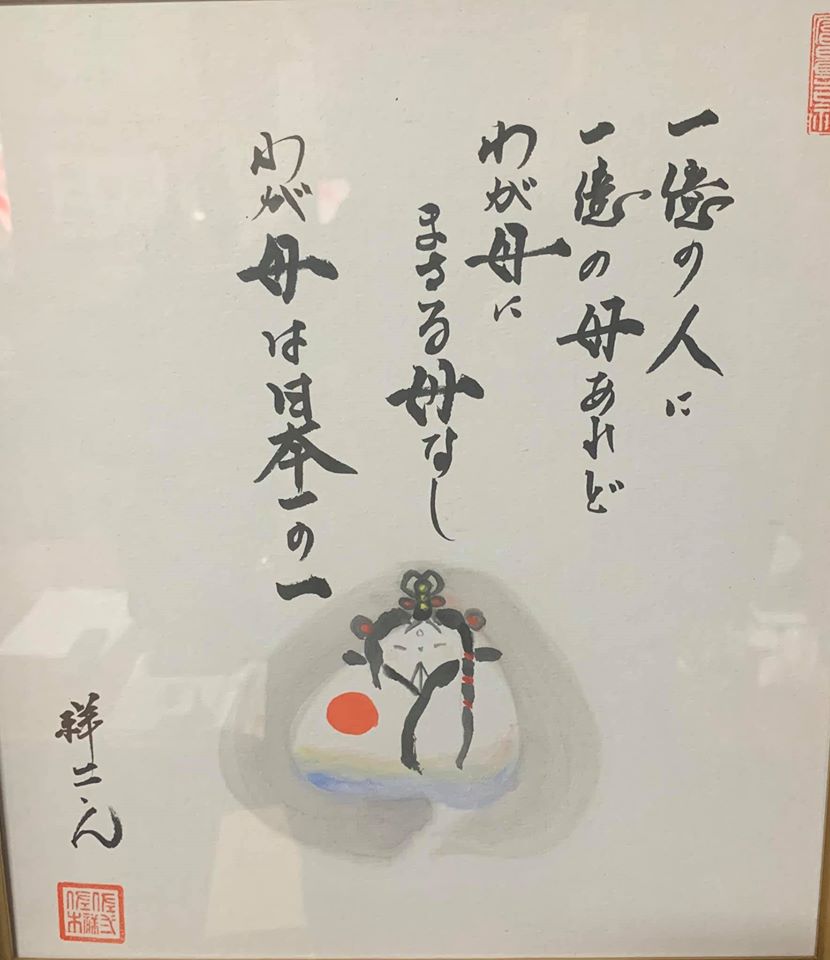 一億の人に
一億の母あれど
わが母に
まさる母なし
わが母は日本一の一